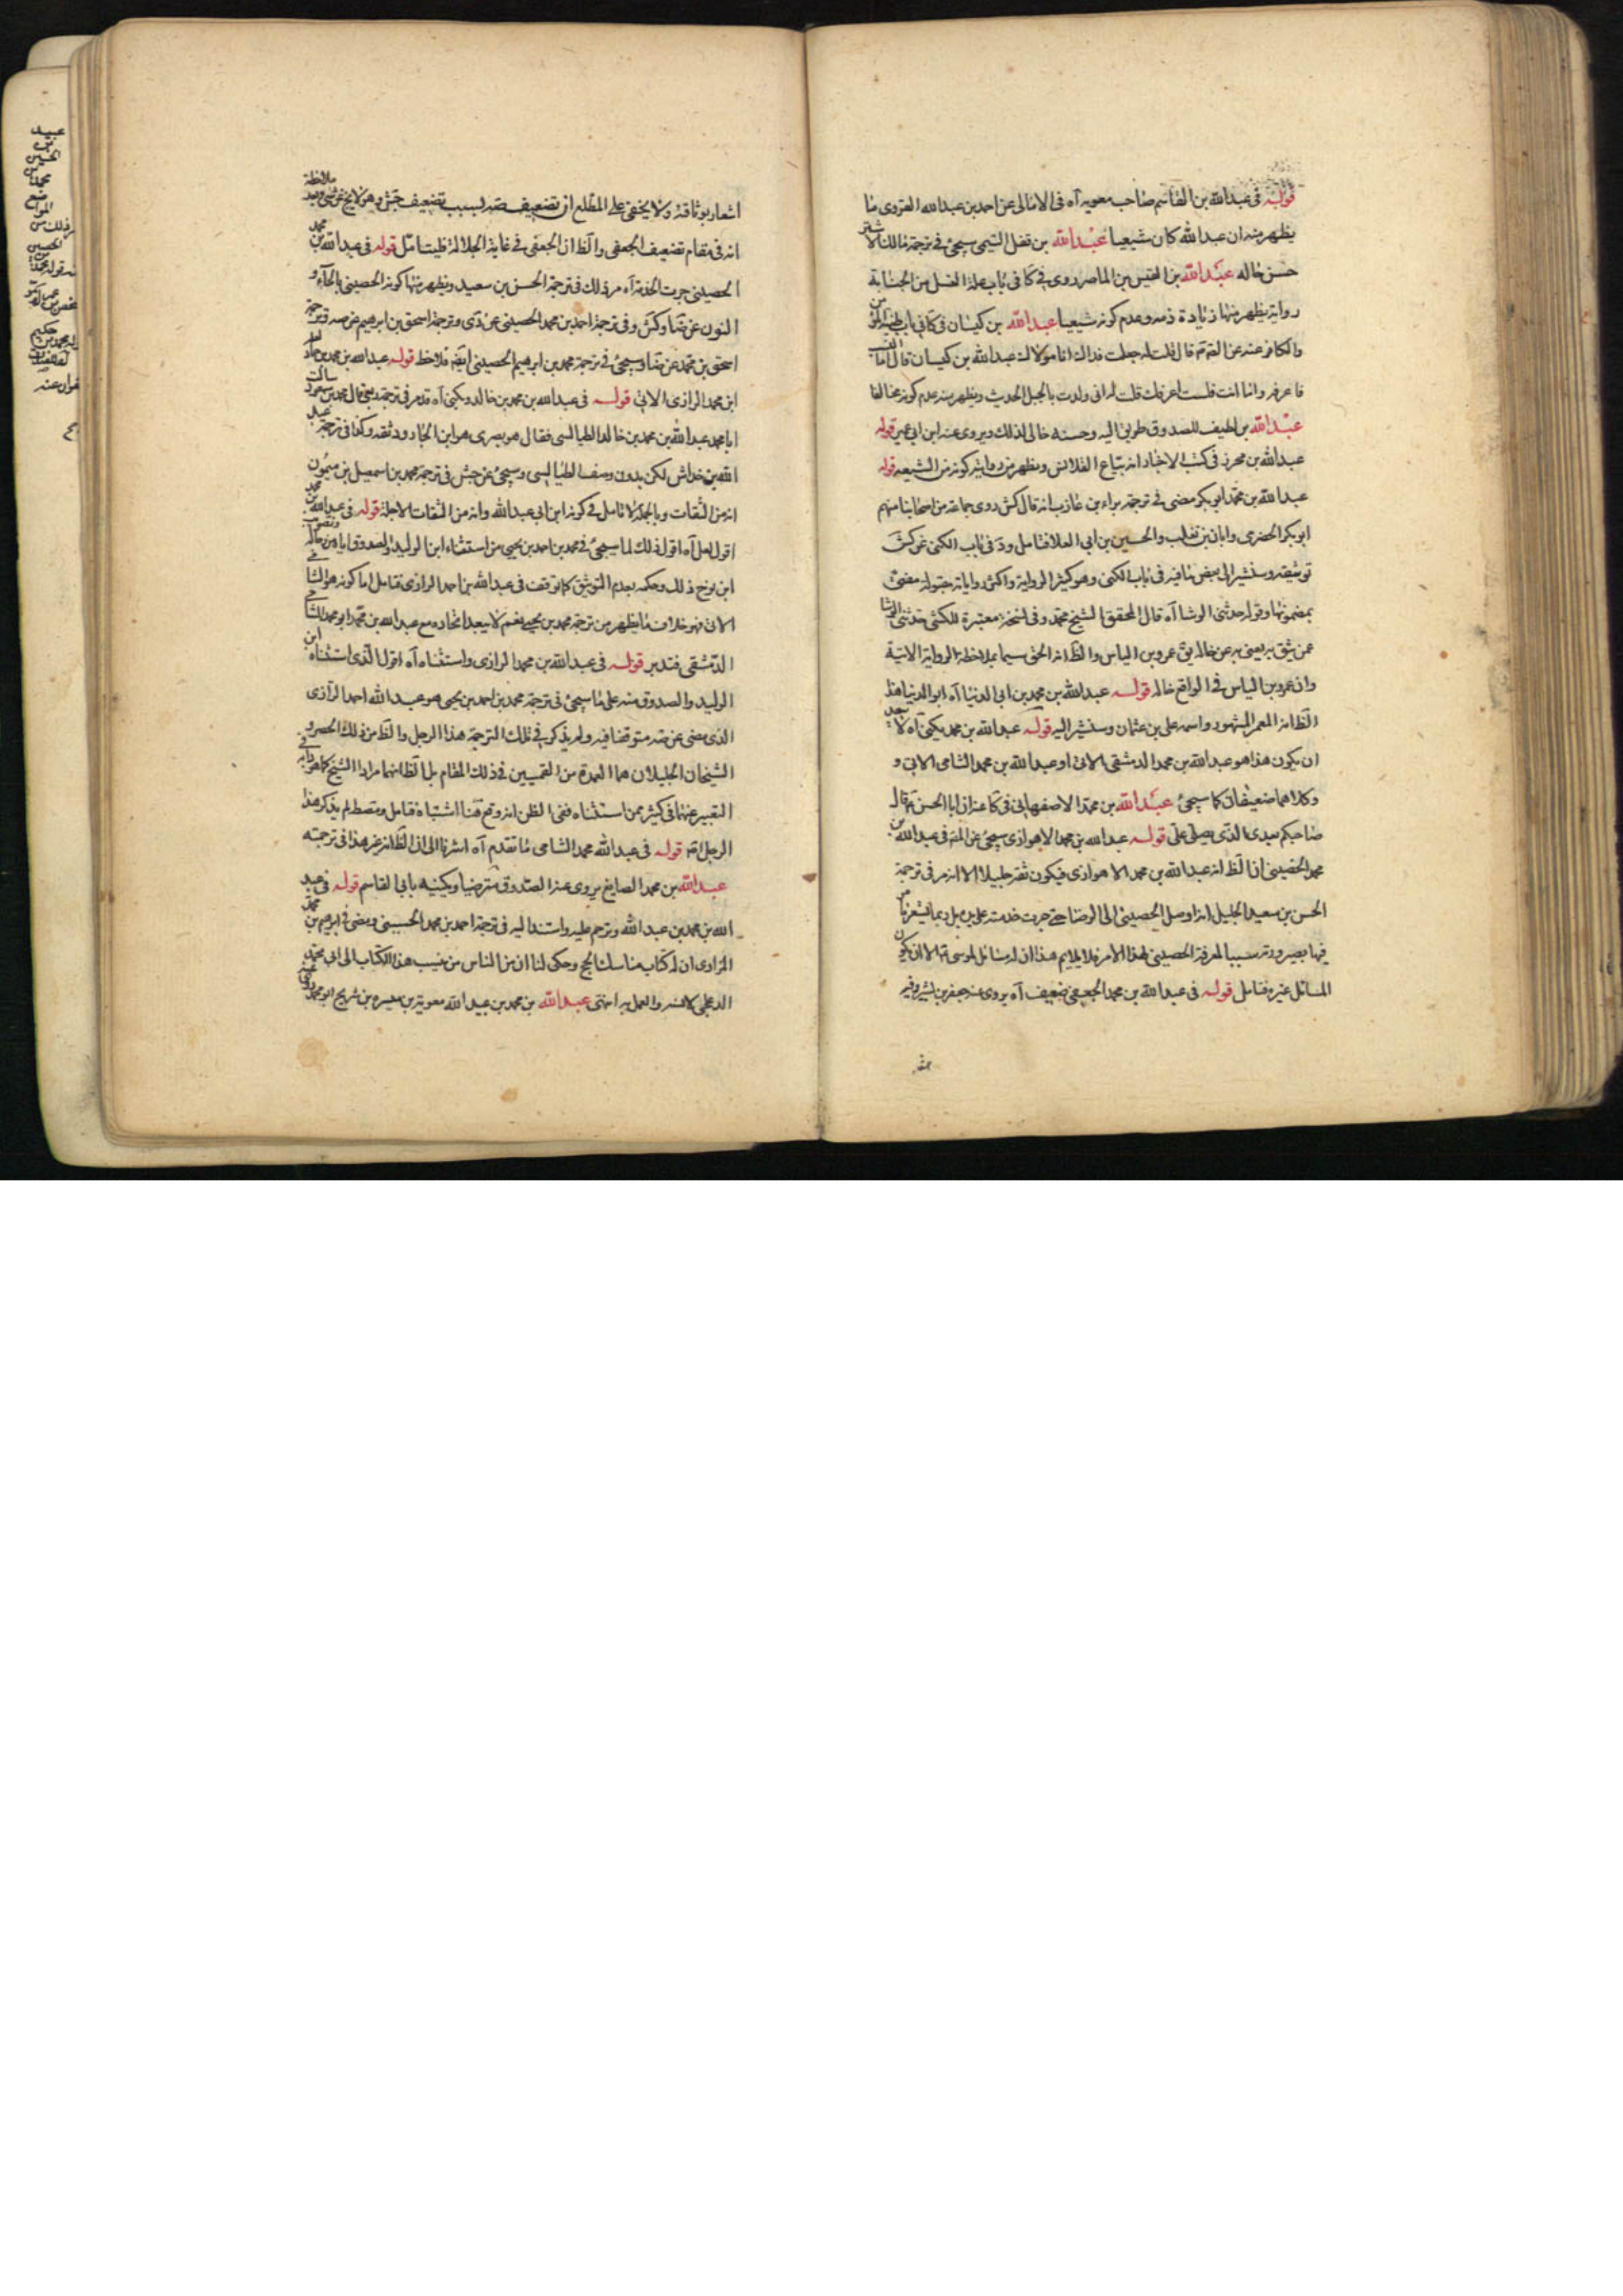 قوله في عبدالله بن القاسم صاحب معويه آه في الامالى عن احمد بن عبدالله الغروى ما
يظهر منه ان عبدالله كان شيعيا عبدالله بن قفل التيمى سيجئ في ترجمة مالك الاشتر
حسن حاله عبدالله بن القيس بن الماصر روى في كا في باب علة الغسل من الجنابة
رواية يظهر منها زيادة ذمه وعدم كونه شيعيا عبدالله بن كيسان في كا في باب طينة المؤمن
والكافر عنه عن الص قال قلت له جعلت فداك انا مولاك عبدالله بن كيسان قال اما النسب
فاعرفه واما انت فلست اعرفك قلت له انى ولدت بالجبل الحديث ويظهر منه عدم كونه مخالفا
عبدالله بن لطيف للصدوق طريق اليه وحسنه خالى لذلك ويروى عنه ابن ابى عمير قوله
عبدالله بن محرز في كتب الاخبار انه بياع القلانس ويظهر من رواية كونه من الشيعة قوله
عبدالله بن محمد ابو بكر مضى في ترجمة براء بن عازب انه قال كش روى جماعة من اصحابنا منهم
ابو بكر الحضرى وابان بن تغلب والحسين بن ابى العلا فتامل ود في باب الكنى عن كش
توثيقه وسنشير الى بعض ما فيه في باب الكنى وهو كثير الرواية واكثر رواياته مقبولة مفتى
بمضمونها وقوله حدثنى الوشا آه قال المحقق الشيخ محمد وفي نسخة معتبرة للكشى حدثنى الوشا
عمن يثق به يعنى به عن خاله يق عمرو بن الياس والظ انه الحق سيما بملاحظة الرواية الاتية
وان عمرو بن الياس في الواقع خاله قوله عبدالله بن محمد بن ابى الدنيا آه ابو الدنيا هذا
الظ انه المعمر المشهور واسمه على بن عثمان وسنشير اليه قوله عبدالله بن محمد يكنى آه لا يبعد
ان يكون هذا هو عبدالله بن محمد الدمشقى الاتى او عبدالله بن محمد الشامى الاتى و
وكلاهما ضعيفان كما سيجئ عبدالله بن محمد الاصفهانى في كا عنه ان ابا الحسن ع قال
صاحبكم بعدى الذى يصلى على قوله عبدالله بن محمد الاهوازى سيجئ عن المص في عبدالله بن
محمد الحضينى ان الظ انه عبدالله بن محمد الاهوازى فيكون ثقة جليلا الا انه مر في ترجمة
الحسن بن سعيد الجليل انه اوصل الحصينى الى الرضا ع حتى جرت خدمته على يديه بل ربما يشعر ما من
فيها بصيرورته سببا لمعرفة الحصينى لهذا الامر فلا يلايم هذا ان له مسائل لموسى ع الا ان يكون
المسائل غيره فتامل قوله في عبدالله بن محمد الجعفى ضعيف آه يروى عنه جعفر بن بشير وفيه
اشعار بوثاقته ولا يخفى على المطلع ان تضعيف صه لسبب تضعيف جش وهو لا يخ عن شئ وبعد ملاحظة
انه في مقام تضعيف الجعفى والظ ان الجعفى في غاية الجلالة فليتامل قوله في عبدالله بن محمد
الحصينى جرت الخدمة آه مر ذلك في ترجمة الحسن بن سعيد ويظهر منها كونه الحصينى بالحاء و
النون عن ضا وكش وفي ترجمة احمد بن محمد الحصينى عن دى وترجمة اسحق بن ابرهيم عن صه وترجمة
اسحق بن محمد عن ضا وسيجئ في ترجمة محمد بن ابرهيم الحصينى ايضه فلاحظ قوله عبدالله بن محمد بن خالد
ابن محمد الرازى الاتى قوله في عبدالله بن محمد بن خالد ويكنى آه قد مر في ترجمة ربعى قال محمد بن مسعود سالت
ابا محمد عبدالله بن محمد بن خالد الطيالسى فقال هو بصرى هو ابن الجارود ثقه وكذا في ترجمة عبد
الله بن خداش لكن بدون وصف الطيالسى وسيجئ عن جش في ترجمة محمد بن اسمعيل بن ميمون
انه من الثقات وبالجملة لا تامل في كونه ابن ابى عبدالله وانه من الثقات الاجلة قوله في عبدالله بن محمد
اقول لعل آه اقول ذلك لما سيجئ في محمد بن احمد بن يحيى من استثناء ابن الوليد والصدوق اياه من رجاله وتصويب
ابن نوح ذلك وحكمه بعدم التوثيق كما توقفت في عبدالله بن احمد الرازى فتامل اما كونه هو الشامى
الاتى فهو خلاف ما يظهر من ترجمة محمد بن يحيى نعم لا يبعد اتحاده مع عبدالله بن محمد ابو محمد الشامى
الدمشقى فتدبر قوله في عبدالله بن محمد الرازى واستثناه آه اقول الذى استثناه ابن
الوليد والصدوق منه على ما سيجئ في ترجمة محمد بن احمد بن يحيى هو عبدالله احمد الرازى
الذى مضى عن صه متوقفا فيه ولم يذكر في تلك الترجمة هذا الرجل والظ من ذلك الحصر و
الشيخان الجليلان هما العمدة من القميين في ذلك المقام بل الظ انهما مراد الشيخ كما هو دابه في
التعبير عنهما في كثير ممن استثناه ففى الظن انه وقع هنا اشتباه فتامل ومصط لم يذكر هذا
الرجل اص قوله في عبدالله محمد الشامى ما تقدم آه اشرنا الى ان الظ انه غير هذا في ترجمته
عبدالله بن محمد الصايغ يروى عنه الصدوق مترضيا ويكنيه بابى القاسم قوله في عبد
الله بن محمد بن عبدالله وترحم عليه واستند اليه في ترجمة احمد بن محمد الحسينى ومضى في ابرهيم بن محمد
المزارى ان له كتاب مناسك الحج وحكى لنا ان من الناس من ينسب هذا الكتاب الى ابى محمد
الدعلجى والعمل به انتهى عبدالله بن محمد بن عبيد الله معوية بن ميسرة بن شريح ابو محمد
عبيد
بن
الحسين
محمد